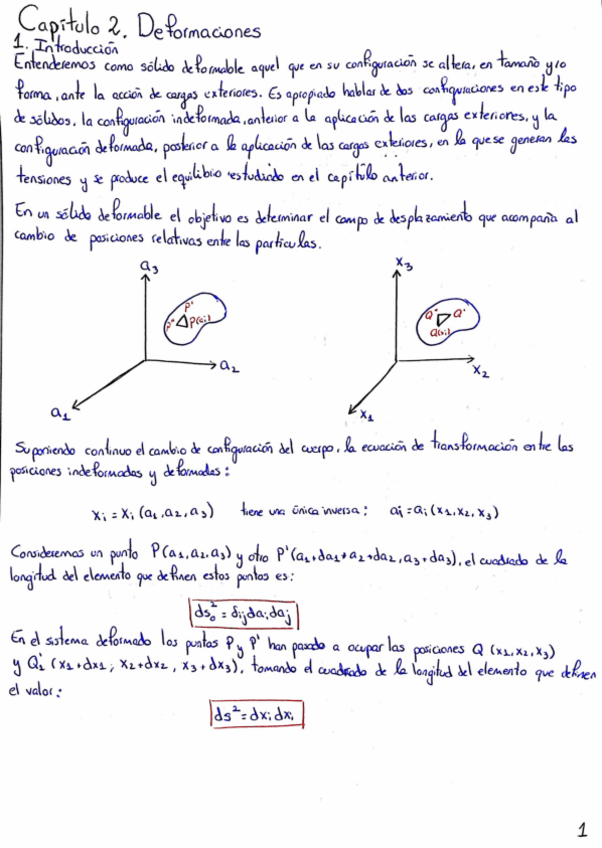 Capítulo 2. Deformaciones
1. Introducción
Entenderemos como sólido deformable aquel que en su configuración se altera, en tamaño y/o
forma, ante la acción de cargas exteriores. Es apropiado hablar de dos configuraciones en este tipo
de sólidos, la configuración indeformada, anterior a la aplicación de las cargas exteriores, y la
configuración deformada, posterior a la aplicación de las cargas exteriores, en la que se generan las
tensiones y se produce el equilibrio estudiado en el capítulo anterior.
En un sólido deformable el objetivo es determinar el campo de desplazamiento que acompaña al
cambio de posiciones relativas entre las partículas.
a₃
P'
P"
P(ai)
a₂
a₁
x₃
Q"
Q'
Q(xi)
x₂
x₁
Suponiendo continuo el cambio de configuración del cuerpo, la ecuación de transformación entre las
posiciones indeformadas y deformadas:
xi = xi (a₁, a₂, a₃) tiene una única inversa: ai = ai (x₁, x₂, x₃)
Consideremos un punto P(a₁, a₂, a₃) y otro P'(a₁+da₁, a₂+da₂, a₃+da₃), el cuadrado de la
longitud del elemento que definen estos puntos es:
ds₀² = δij dai daj
En el sistema deformado los puntos P y P' han pasado a ocupar las posiciones Q (x₁, x₂, x₃)
y Q' (x₁+dx₁, x₂+dx₂, x₃+dx₃), tomando el cuadrado de la longitud del elemento que definen
el valor:
ds² = dxi dxi
1